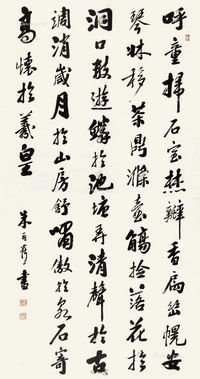 呼童掃石室焚瓣香扃岫幌安
琴牀移茶鼎滌壺觴拾落花於
洞口散遊鱗於池塘弄清聲於古
調消歲月於山房舒嘯傲於泉石寄
高懷於羲皇
朱百 書